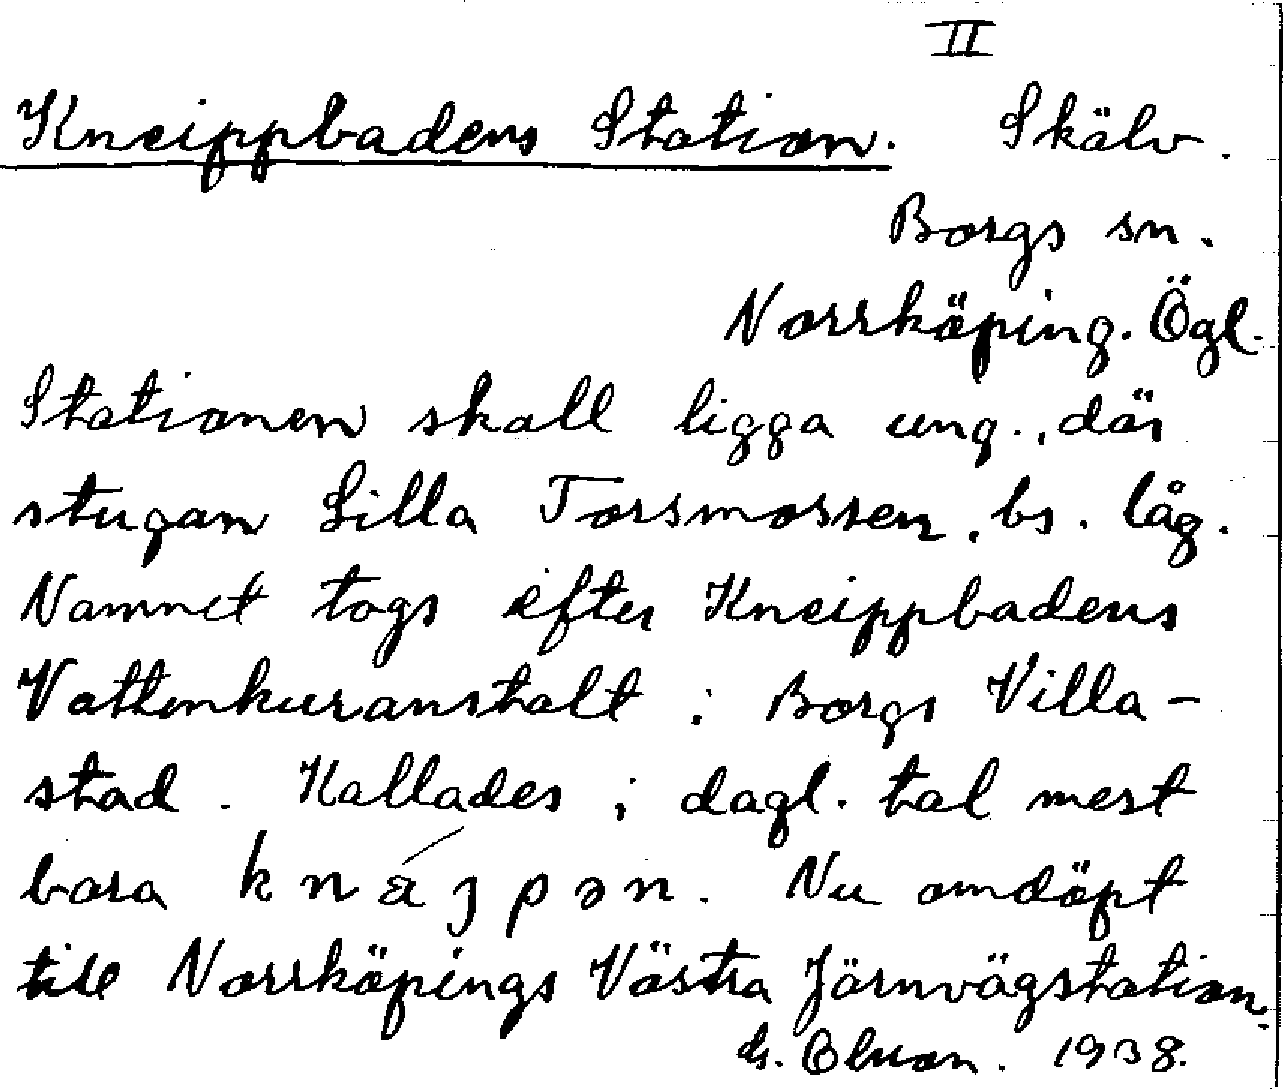 II
Kneippbadens Station. Skälv.
Borgs sn.
Norrköping. Ögl.
Stationen skall ligga ung., där
stugan Lilla Torsmossen, bs. låg.
Namnet togs efter Kneippbadens
Vattenkuranstalt i Borgs Villa-
stad. Kallades i dagl. tal mest
bara knäjpən. Nu omdöpt
till Norrköpings Västra Järnvägstation.
1938.